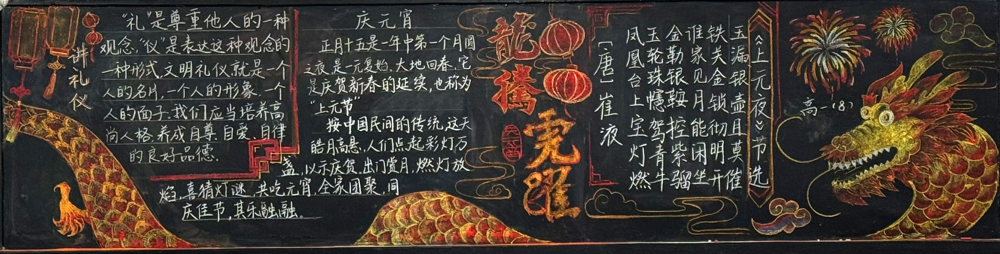 讲礼仪
"礼"是尊重他人的一种
观念,"仪"是表达这种观念的
一种形式.文明礼仪就是一个
人的名片.一个人的形象.一个
人的面子.我们应当培养高
尚人格.养成自尊.自爱.自律
的良好品德.
庆元宵
正月十五是一年中第一个月圆
之夜,是一元复始.大地回春.它
是庆贺新春的延续,也称为
"上元节"
按中国民间的传统,这天
皓月高悬.人们点起彩灯万
盏,以示庆贺.出门赏月.燃灯放
焰.喜猜灯谜.共吃元宵.全家团聚.同
庆佳节,其乐融融。
龍騰虎躍
《上元夜》节选
玉漏银壶且莫催
铁关金锁彻明开
谁家见月能闲坐
金勒银鞍控紫骝
玉轮珠幰驾青牛
凤凰台上宝灯燃
[唐]崔液
高一(8)